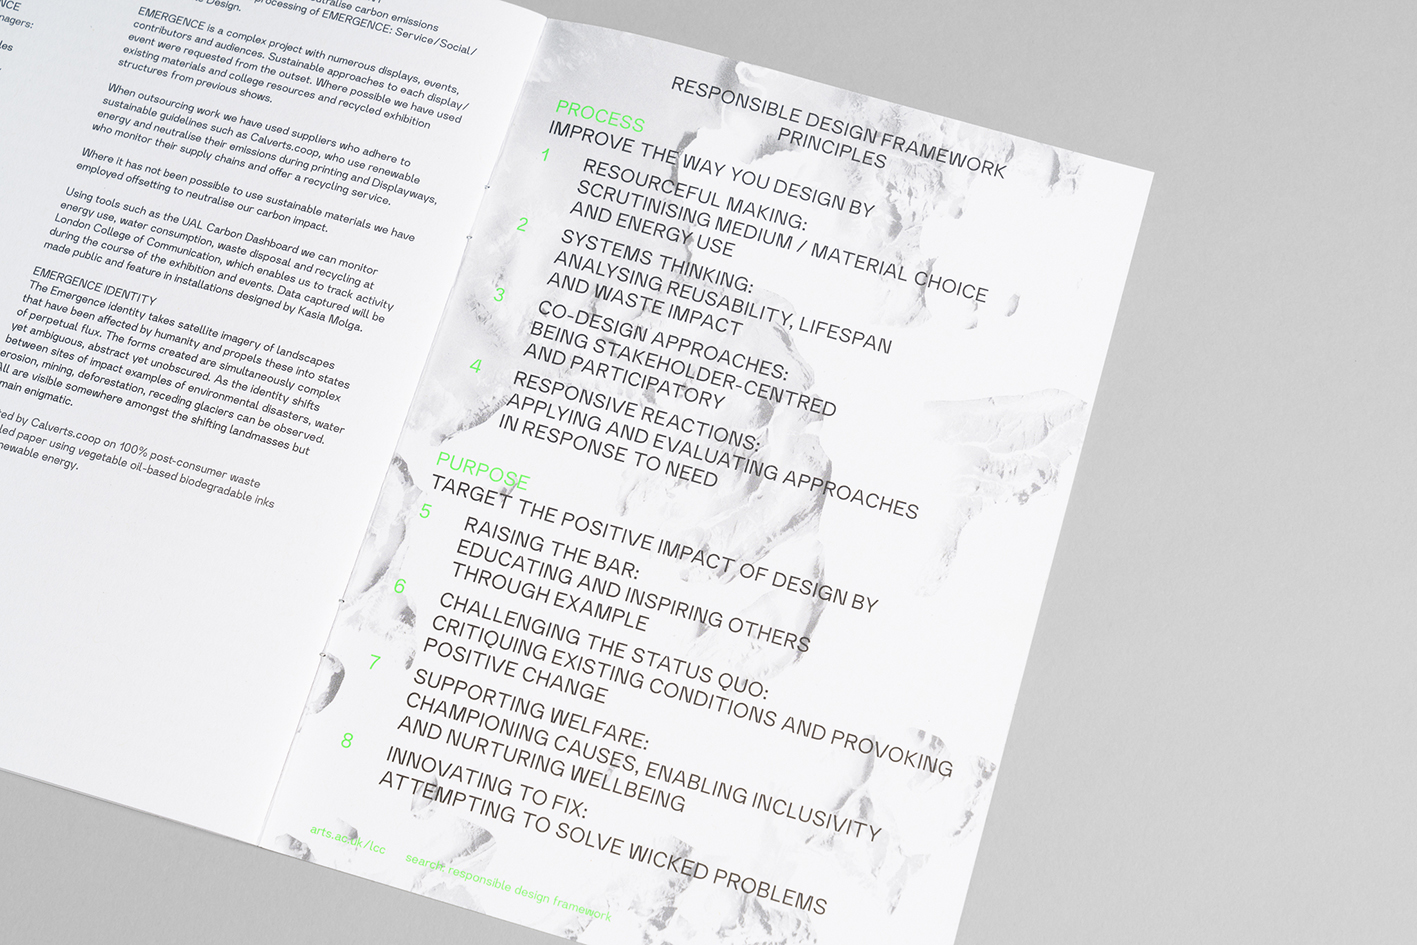 NCE
nagers:
les
neutralise carbon emissions
processing of EMERGENCE: Service/Social/
s Design.
EMERGENCE is a complex project with numerous displays, events,
contributors and audiences. Sustainable approaches to each display/
event were requested from the outset. Where possible we have used
existing materials and college resources and recycled exhibition
structures from previous shows.
When outsourcing work we have used suppliers who adhere to
sustainable guidelines such as Calverts.coop, who use renewable
energy and neutralise their emissions during printing and Displayways,
who monitor their supply chains and offer a recycling service.
Where it has not been possible to use sustainable materials we have
employed offsetting to neutralise our carbon impact.
Using tools such as the UAL Carbon Dashboard we can monitor
energy use, water consumption, waste disposal and recycling at
London College of Communication, which enables us to track activity
during the course of the exhibition and events. Data captured will be
made public and feature in installations designed by Kasia Molga.
EMERGENCE IDENTITY
The Emergence identity takes satellite imagery of landscapes
that have been affected by humanity and propels these into states
of perpetual flux. The forms created are simultaneously complex
yet ambiguous, abstract yet unobscured. As the identity shifts
between sites of impact examples of environmental disasters, water
erosion, mining, deforestation, receding glaciers can be observed.
All are visible somewhere amongst the shifting landmasses but
main enigmatic.
ted by Calverts.coop on 100% post-consumer waste
led paper using vegetable oil-based biodegradable inks
newable energy.
RESPONSIBLE DESIGN FRAMEWORK
PRINCIPLES
PROCESS
IMPROVE THE WAY YOU DESIGN BY
1 RESOURCEFUL MAKING:
SCRUTINISING MEDIUM / MATERIAL CHOICE
AND ENERGY USE
2 SYSTEMS THINKING:
ANALYSING REUSABILITY, LIFESPAN
AND WASTE IMPACT
3 CO-DESIGN APPROACHES:
BEING STAKEHOLDER-CENTRED
AND PARTICIPATORY
4 RESPONSIVE REACTIONS:
APPLYING AND EVALUATING APPROACHES
IN RESPONSE TO NEED
PURPOSE
TARGET THE POSITIVE IMPACT OF DESIGN BY
5 RAISING THE BAR:
EDUCATING AND INSPIRING OTHERS
THROUGH EXAMPLE
6 CHALLENGING THE STATUS QUO:
CRITIQUING EXISTING CONDITIONS AND PROVOKING
POSITIVE CHANGE
7 SUPPORTING WELFARE:
CHAMPIONING CAUSES, ENABLING INCLUSIVITY
AND NURTURING WELLBEING
8 INNOVATING TO FIX:
ATTEMPTING TO SOLVE WICKED PROBLEMS
arts.ac.uk/lcc search: responsible design framework